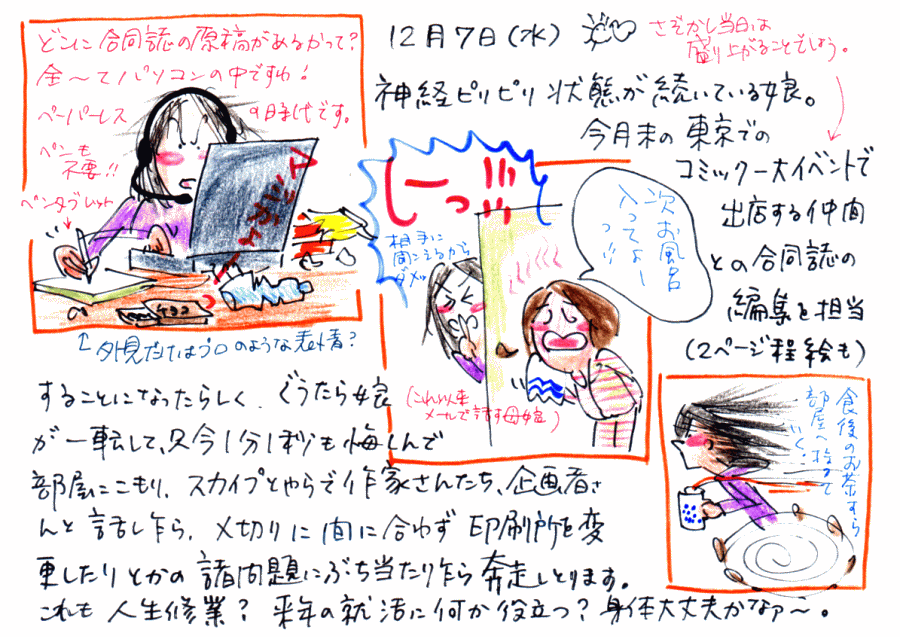 12月7日(水)
さぞかし当日は
盛り上がることでしょう。
神経ピリピリ状態が続いている娘。
今月末の東京での
コミック一大イベントで
出店する仲間
との合同誌の
編集を担当
(2ページ程絵も)
することになったらしく、ぐうたら娘
が一転して、只今1分1秒も惜しんで
部屋にこもり、スカイプとやらで作家さんたち、企画者さ
んと話し乍ら、〆切りに間に合わず印刷所を変
更したりとかの諸問題にぶち当たり乍ら奔走しとります。
これも人生修業?来年の就活に何か役立つ?身体大丈夫かなァ〜。
どこに合同誌の原稿があるかって?
全〜てパソコンの中ですわ!
ペーパーレスの時代です。
ペンも
不要!!
ペンタブレット
チョコ
↑外見だけはプロのような表情?
しーっ!!!
相手に
聞こえるから
ダメッ
次お風呂
入ってよー
っ!!
(これ以来
メールで話す母娘)
食後のお茶すら
部屋へ捨てて
いく。